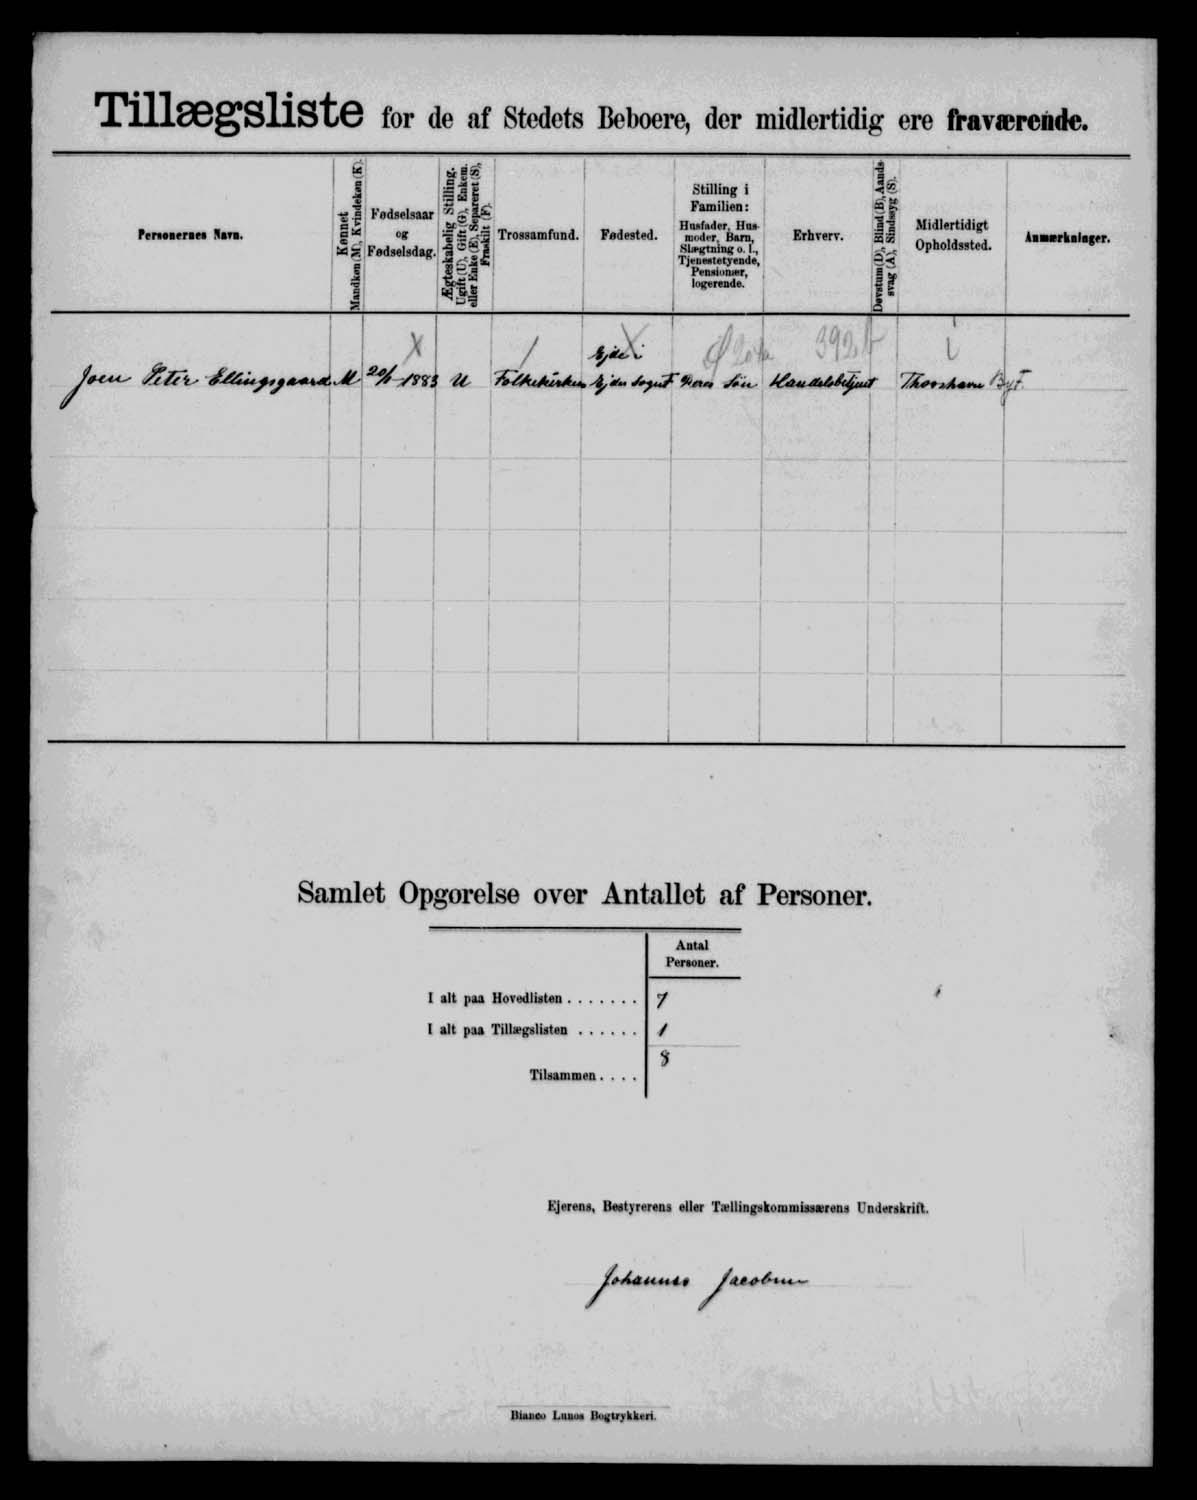 Tillægsliste for de af Stedets Beboere, der midlertidig ere fraværende.
Personernes Navn.
Kønnet
Mandkøn (M), Kvindekøn (K).
Fødselsaar
og
Fødselsdag.
Ægteskabelig Stilling.
Ugift (U), Gift (G), Enkem.
eller Enke (E), Separeret (S),
Fraskilt (F).
Trossamfund.
Fødested.
Stilling i
Familien:
Husfader, Hus-
moder, Barn,
Slægtning o. l.,
Tjenestetyende,
Pensionær,
logerende.
Erhverv.
Døvstum (D), Blind (B), Aands-
svag (A), Sindssyg (S).
Midlertidigt
Opholdssted.
Anmærkninger.
Ejde i
Joen Peter Ellingsgaard M 20/1 1883 U Folkekirken Ejdes Sogn F Deres Søn Handelsbetjent Thorshavn By F.
Samlet Opgørelse over Antallet af Personer.
Antal
Personer.
I alt paa Hovedlisten . . . . . . . 7
I alt paa Tillægslisten . . . . . . 1
Tilsammen . . . . 8
Ejerens, Bestyrerens eller Tællingskommissærens Underskrift.
Johannes Jacobsen
Bianco Lunos Bogtrykkeri.